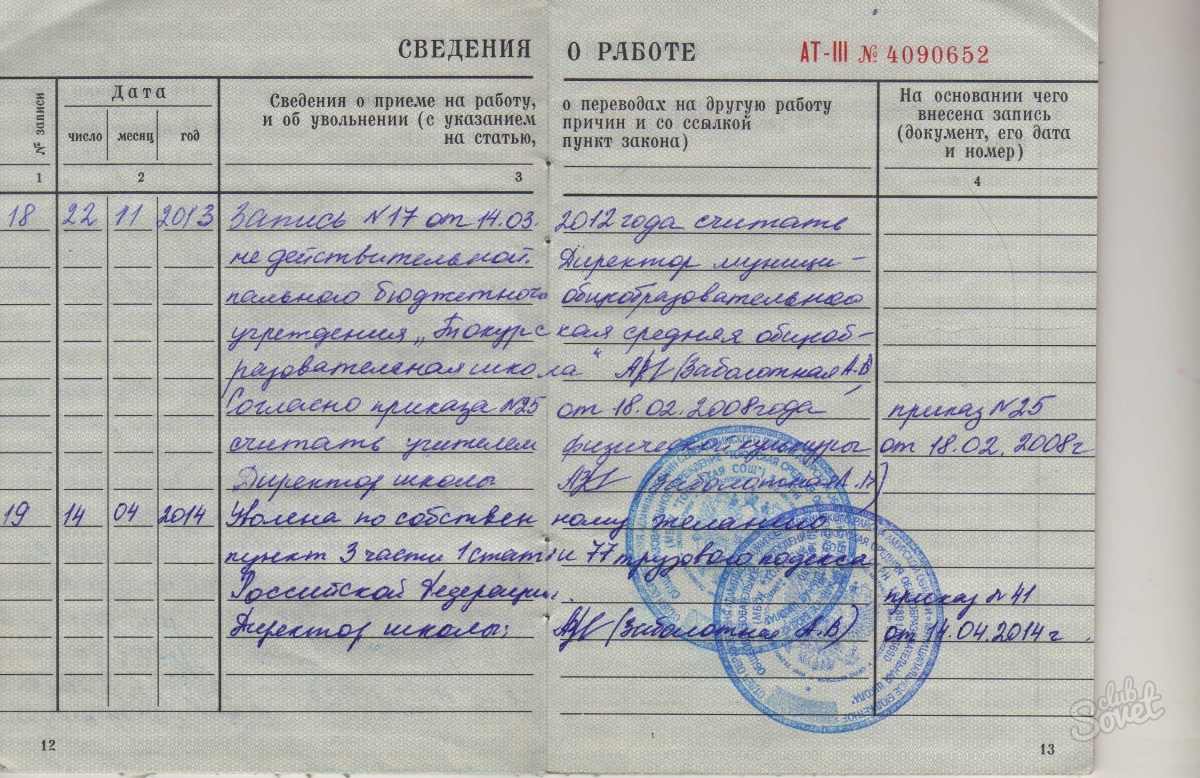 СВЕДЕНИЯ О РАБОТЕ АТ-III № 4090652
№ записи
Дата
число месяц год
Сведения о приеме на работу, о переводах на другую работу
и об увольнении (с указанием причин и со ссылкой
на статью, пункт закона)
На основании чего
внесена запись
(документ, его дата
и номер)
1 2 3 4
18 22 11 2013 Запись N17 от 14.03. 2012 года считать
не действительной. Директор муници-
пального бюджетного общеобразовательного
учреждения „Токурская средняя общеоб-
разовательная школа“ (Заболотная А.В)
Согласно приказа N25 от 18.02.2008 года приказ N25
считать учителем физической культуры от 18.02.2008г
Директор школы (Заболотная А.В)
19 14 04 2014 Уволена по собственному желанию
пункт 3 части 1 статьи 77 трудового кодекса
Российской Федерации. приказ N 41
Директор школы: (Заболотная А.В) от 14.04.2014г.
12 13
club
Sovet